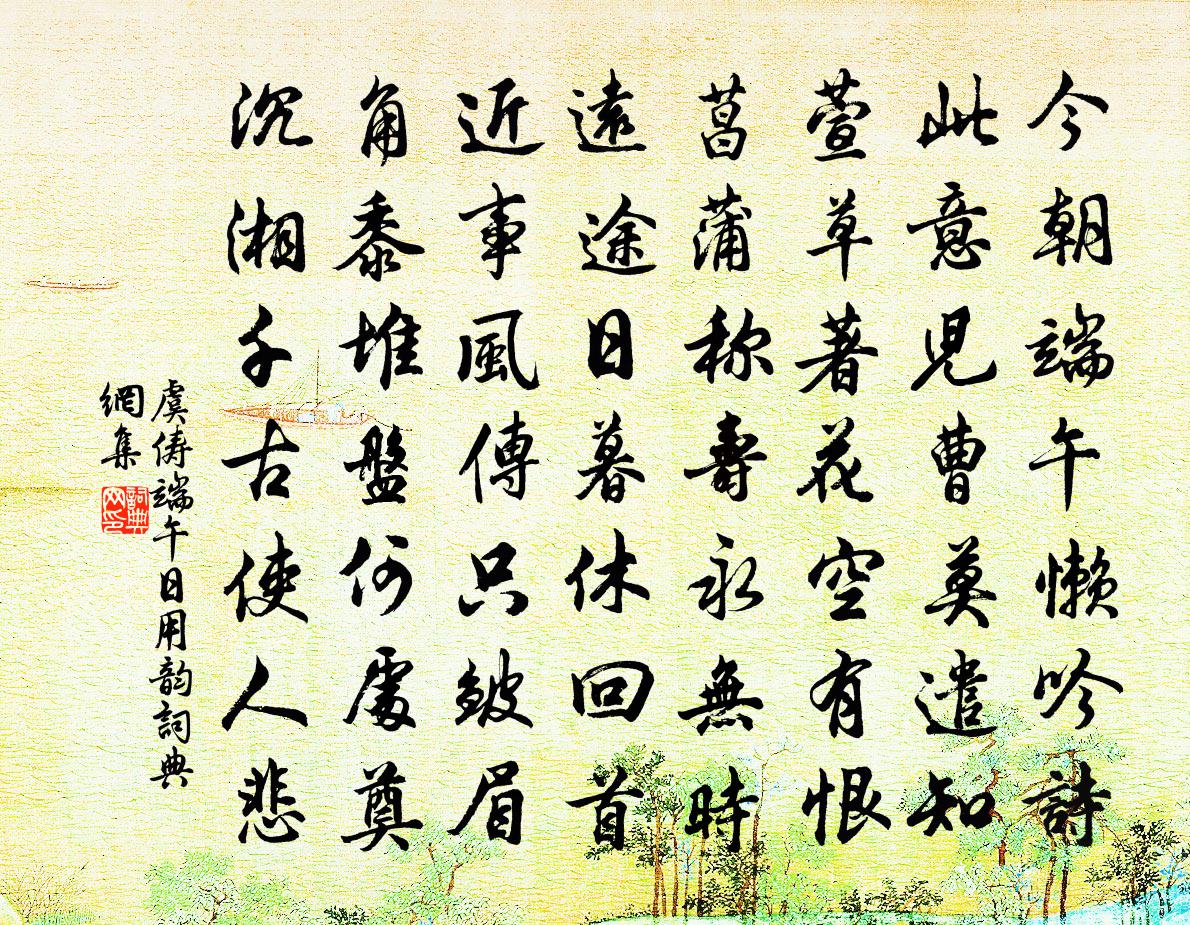 今朝端午懶吟詩
此意兒曹莫遣知
萱草著花空有恨
菖蒲称壽永無時
遠途日暮休回首
近事風傳只皺眉
角黍堆盤何處奠
沉湘千古使人悲
虞儔端午日用韵詞典
網集
詞典
网印